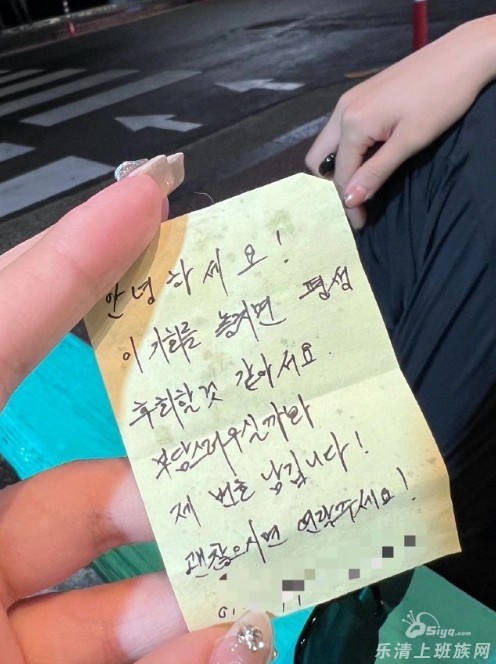 안녕하세요!
이 기회를 놓치면 평생
후회할것 같아서요.
부담스러우실까봐
제 번호 남깁니다!
괜찮으시면 연락주세요!
Siyq.com
乐清上班族网